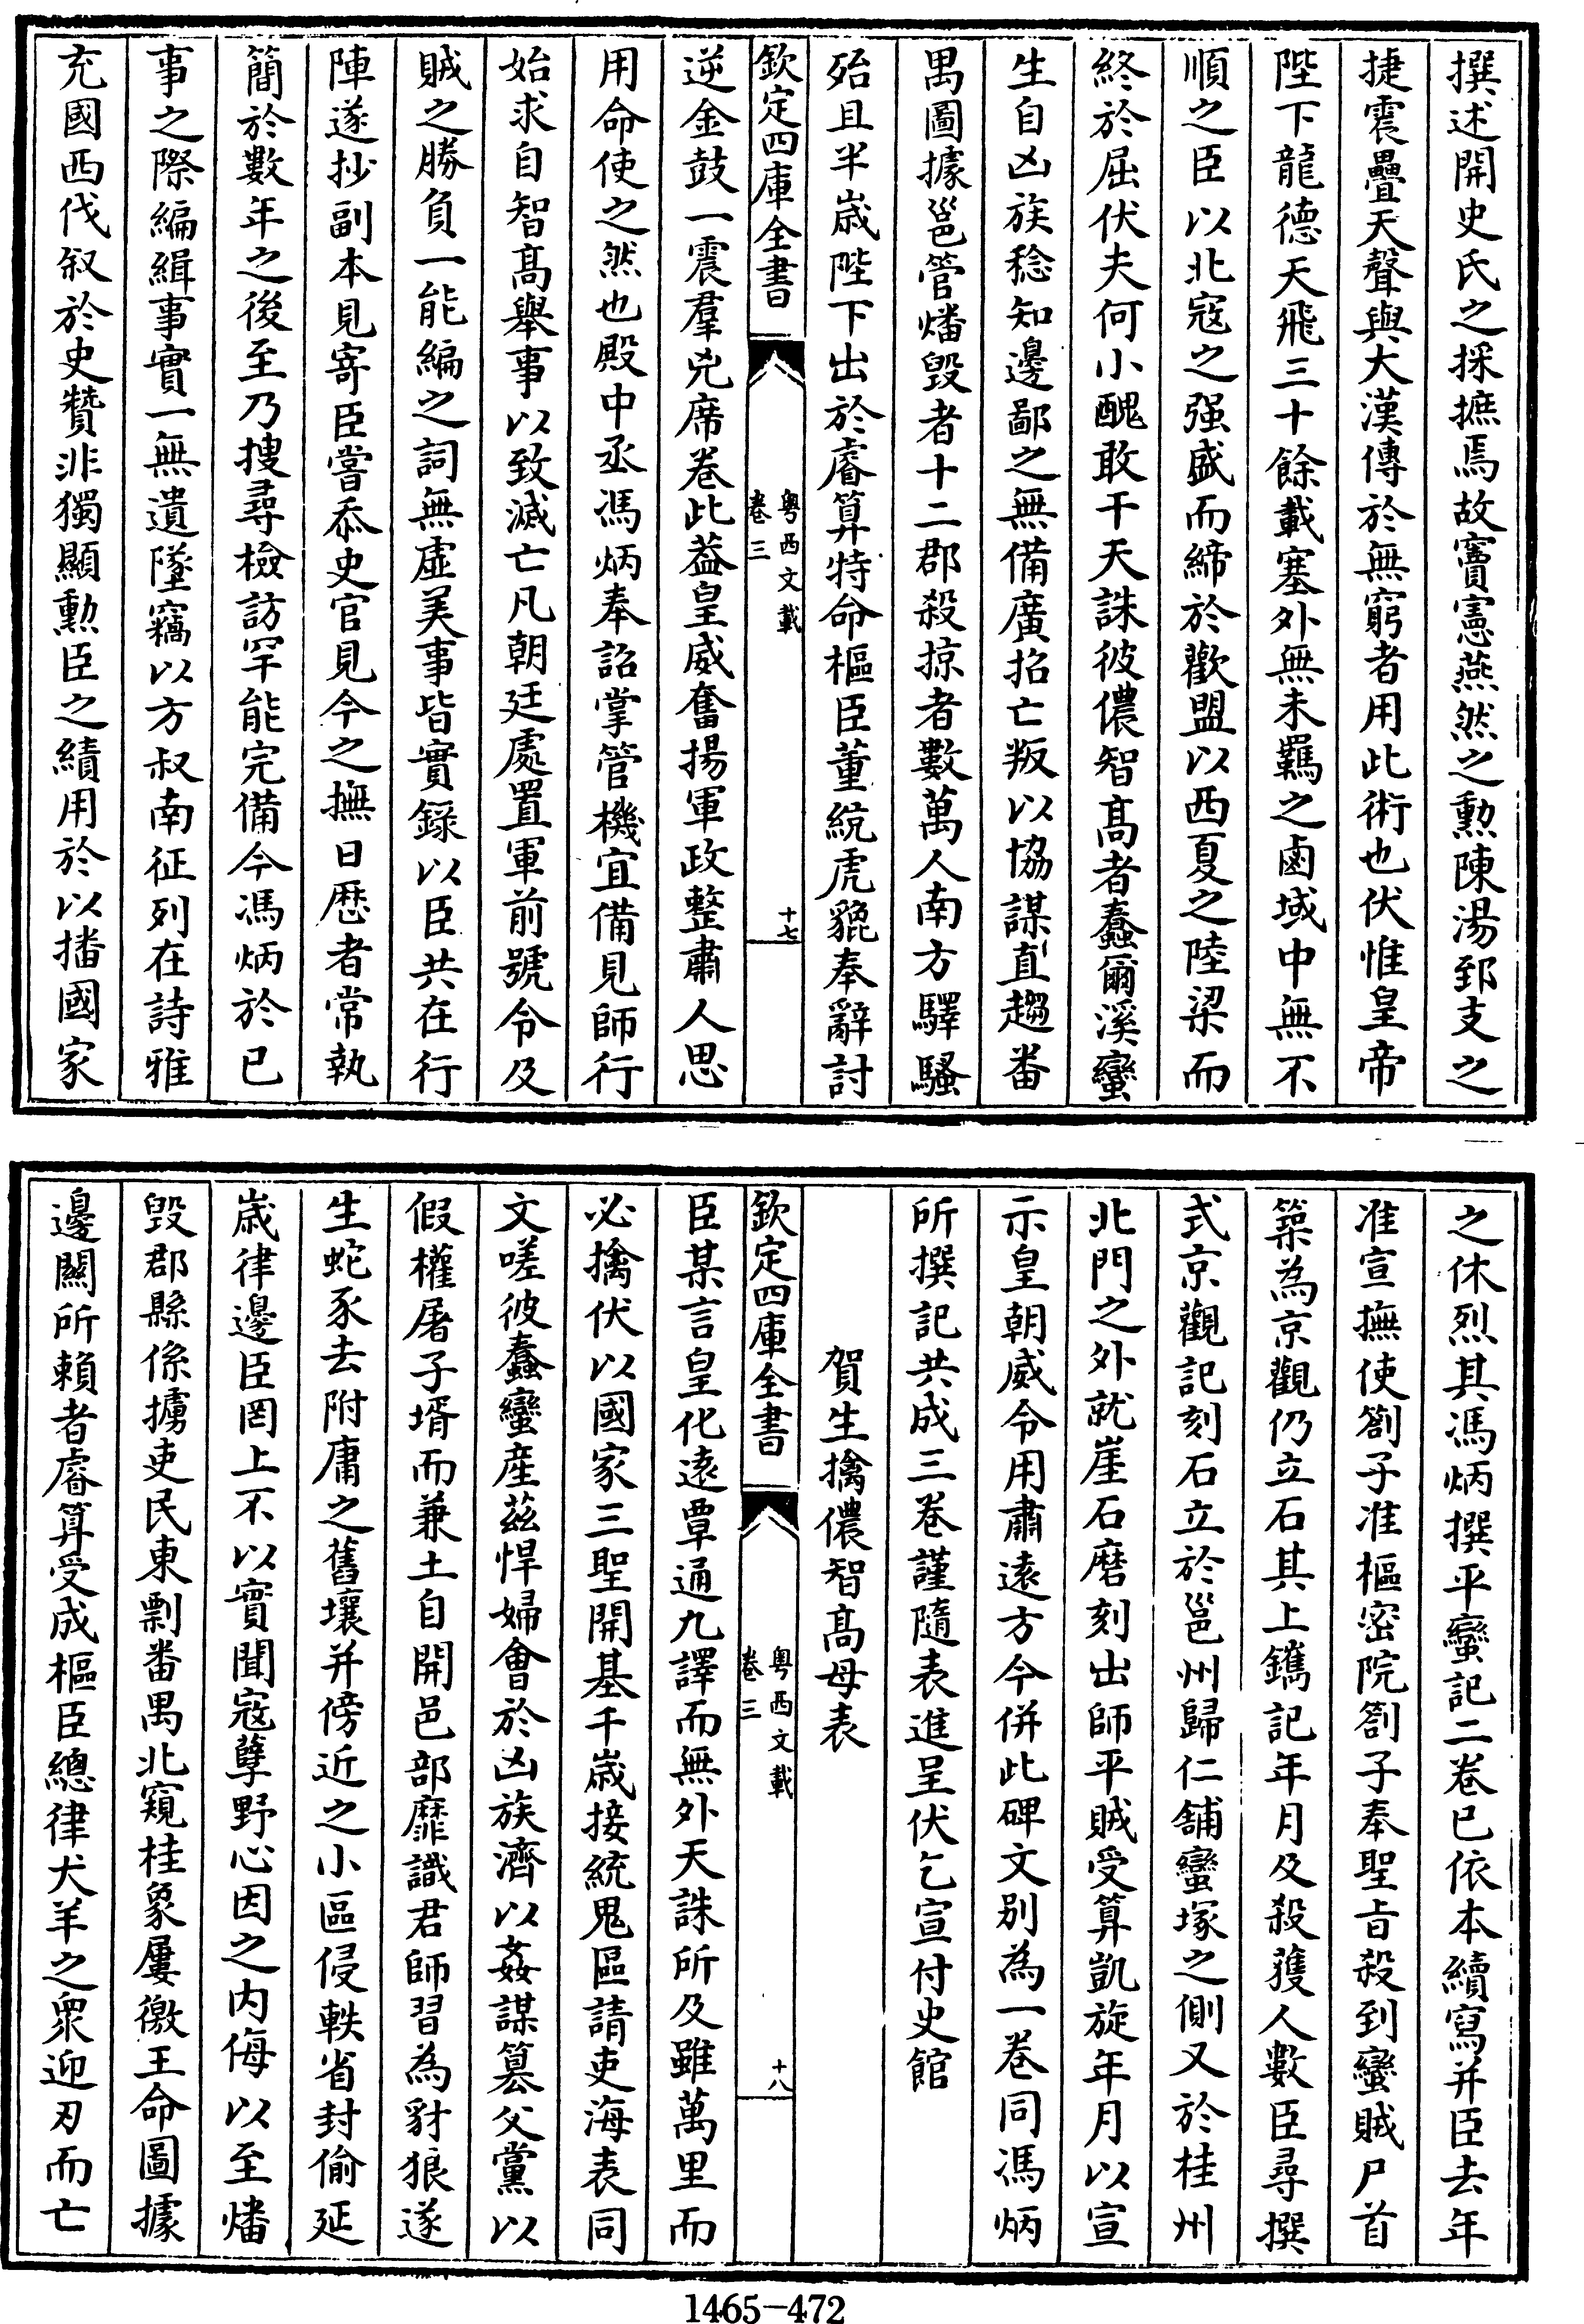 撰述開史氏之採摭焉故竇憲燕然之勲陳湯郅支之
捷震疊天聲與大漢傳於無窮者用此術也伏惟皇帝
陛下龍德天飛三十餘載塞外無未羈之鹵域中無不
順之臣以北寇之强盛而締於歡盟以西夏之陸梁而
終於屈伏夫何小醜敢干天誅彼儂智髙者蠢爾溪蠻
生自凶族稔知邊鄙之無備廣招亡叛以協謀直趨番
禺圖據邕管燔毁者十二郡殺掠者數萬人南方驛騷
殆且半嵗陛下出於睿算特命樞臣董統虎貔奉辭討
欽定四庫全書
粤西文載
卷三
十七
逆金鼓一震羣兇席卷此葢皇威奮揚軍政整肅人思
用命使之然也殿中丞馮炳奉詔掌管機宜備見師行
始求自智髙舉事以致滅亡凡朝廷處置軍前號令及
賊之勝負一能編之詞無虛美事皆實錄以臣共在行
陣遂抄副本見寄臣嘗忝史官見今之撫日厯者常執
簡於數年之後至乃搜尋檢訪罕能完備今馮炳於已
事之際編緝事實一無遺墜竊以方叔南征列在詩雅
充國西伐叙於史贊非獨顯勲臣之績用於以播國家
之休烈其馮炳撰平蠻記二卷已依本續寫并臣去年
准宣撫使劄子准樞密院劄子奉聖㫖殺到蠻賊尸首
築為京觀仍立石其上鐫記年月及殺獲人數臣尋撰
式京觀記刻石立於邕州歸仁舖蠻塚之側又於桂州
北門之外就崖石磨刻出師平賊受算凱旋年月以宣
示皇朝威令用肅逺方今併此碑文别為一卷同馮炳
所撰記共成三卷謹隨表進呈伏乞宣付史館
賀生擒儂智髙母表
欽定四庫全書
粤西文載
卷三
十八
臣某言皇化逺覃通九譯而無外天誅所及雖萬里而
必擒伏以國家三聖開基千嵗接統鬼區請吏海表同
文嗟彼蠢蠻産兹悍婦會於凶族濟以姦謀簒父黨以
假權屠子壻而兼土自開邑部靡識君師習為豺狼遂
生蛇豕去附庸之舊壤并傍近之小區侵軼省封偷延
嵗律邊臣罔上不以實聞寇孽野心因之内侮以至燔
毁郡縣係擄吏民東剽番禺北窺桂象屢徼王命圖據
邊關所賴者睿算受成樞臣總律犬羊之衆迎刃而亡
1465-472